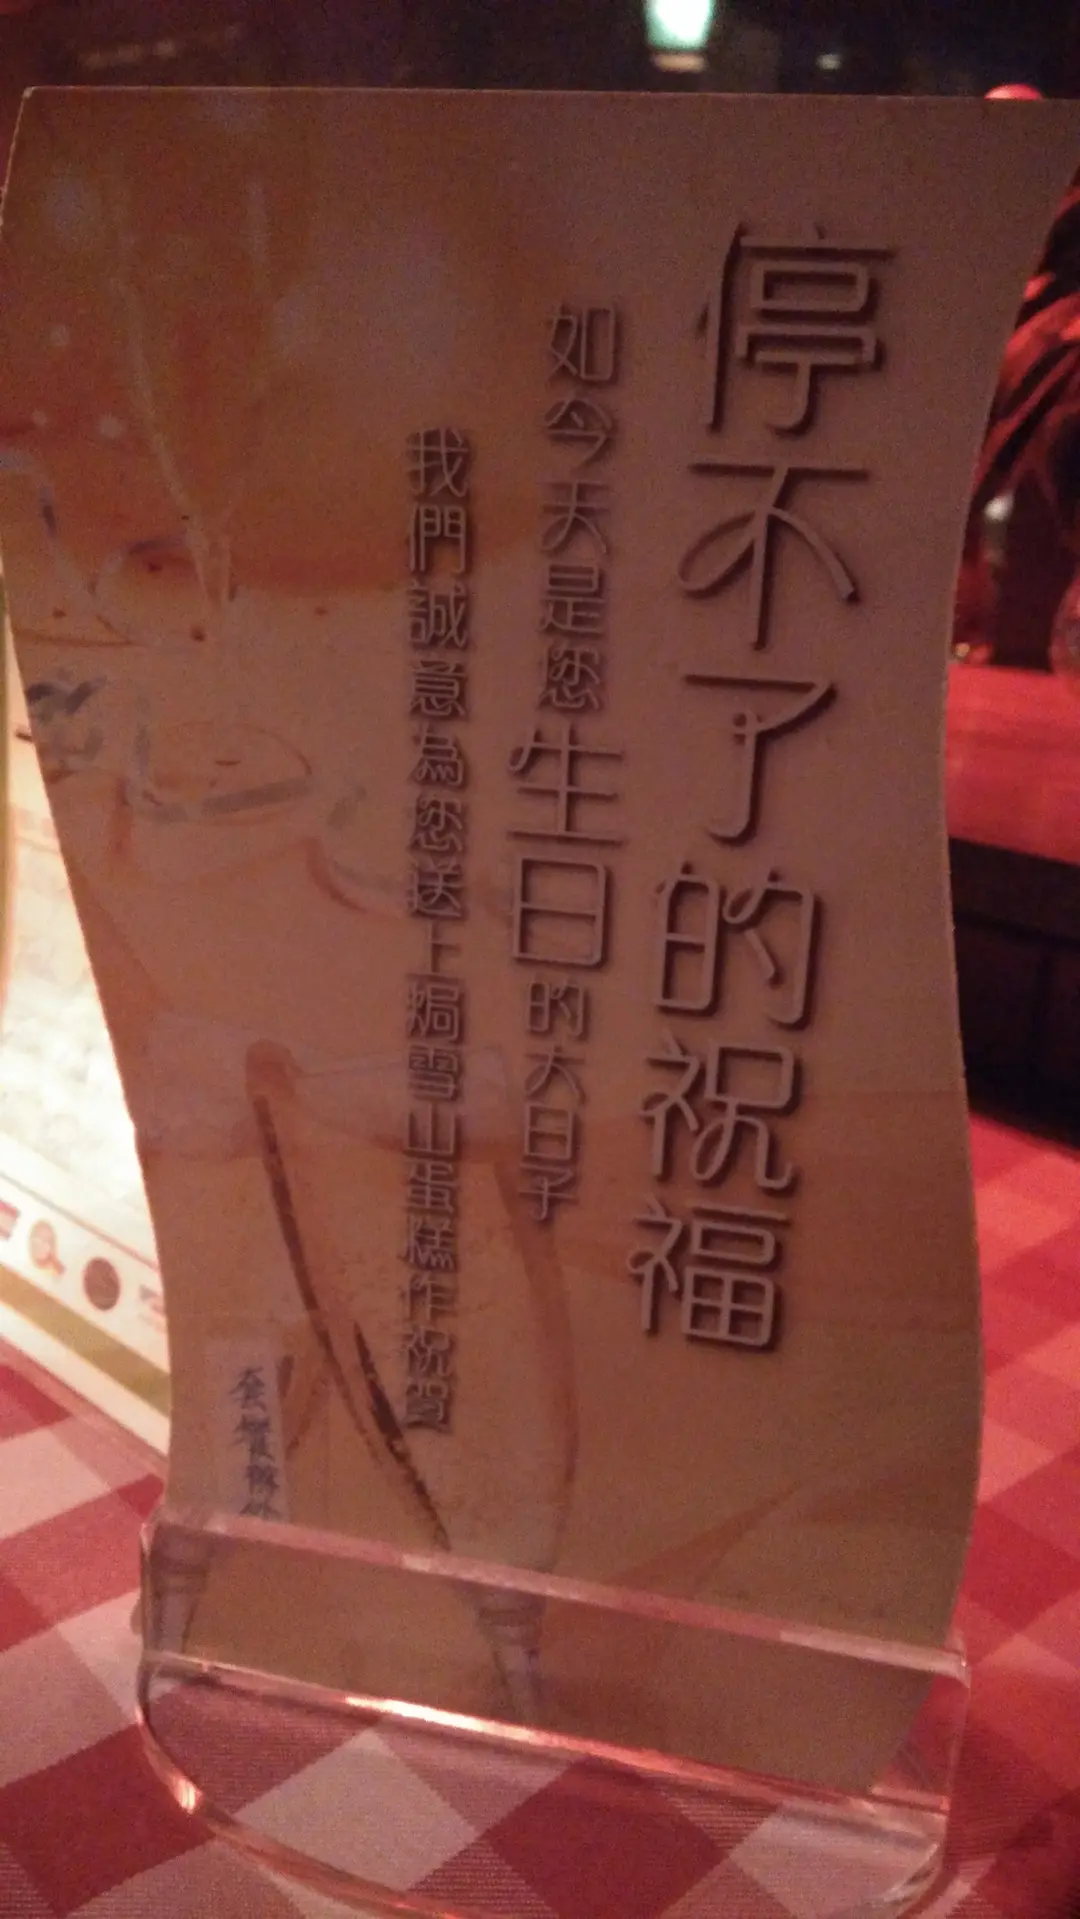 停不了的祝福
如今天是您生日的大日子
我們誠意為您送上焗雪山蛋糕作祝賀
套餐